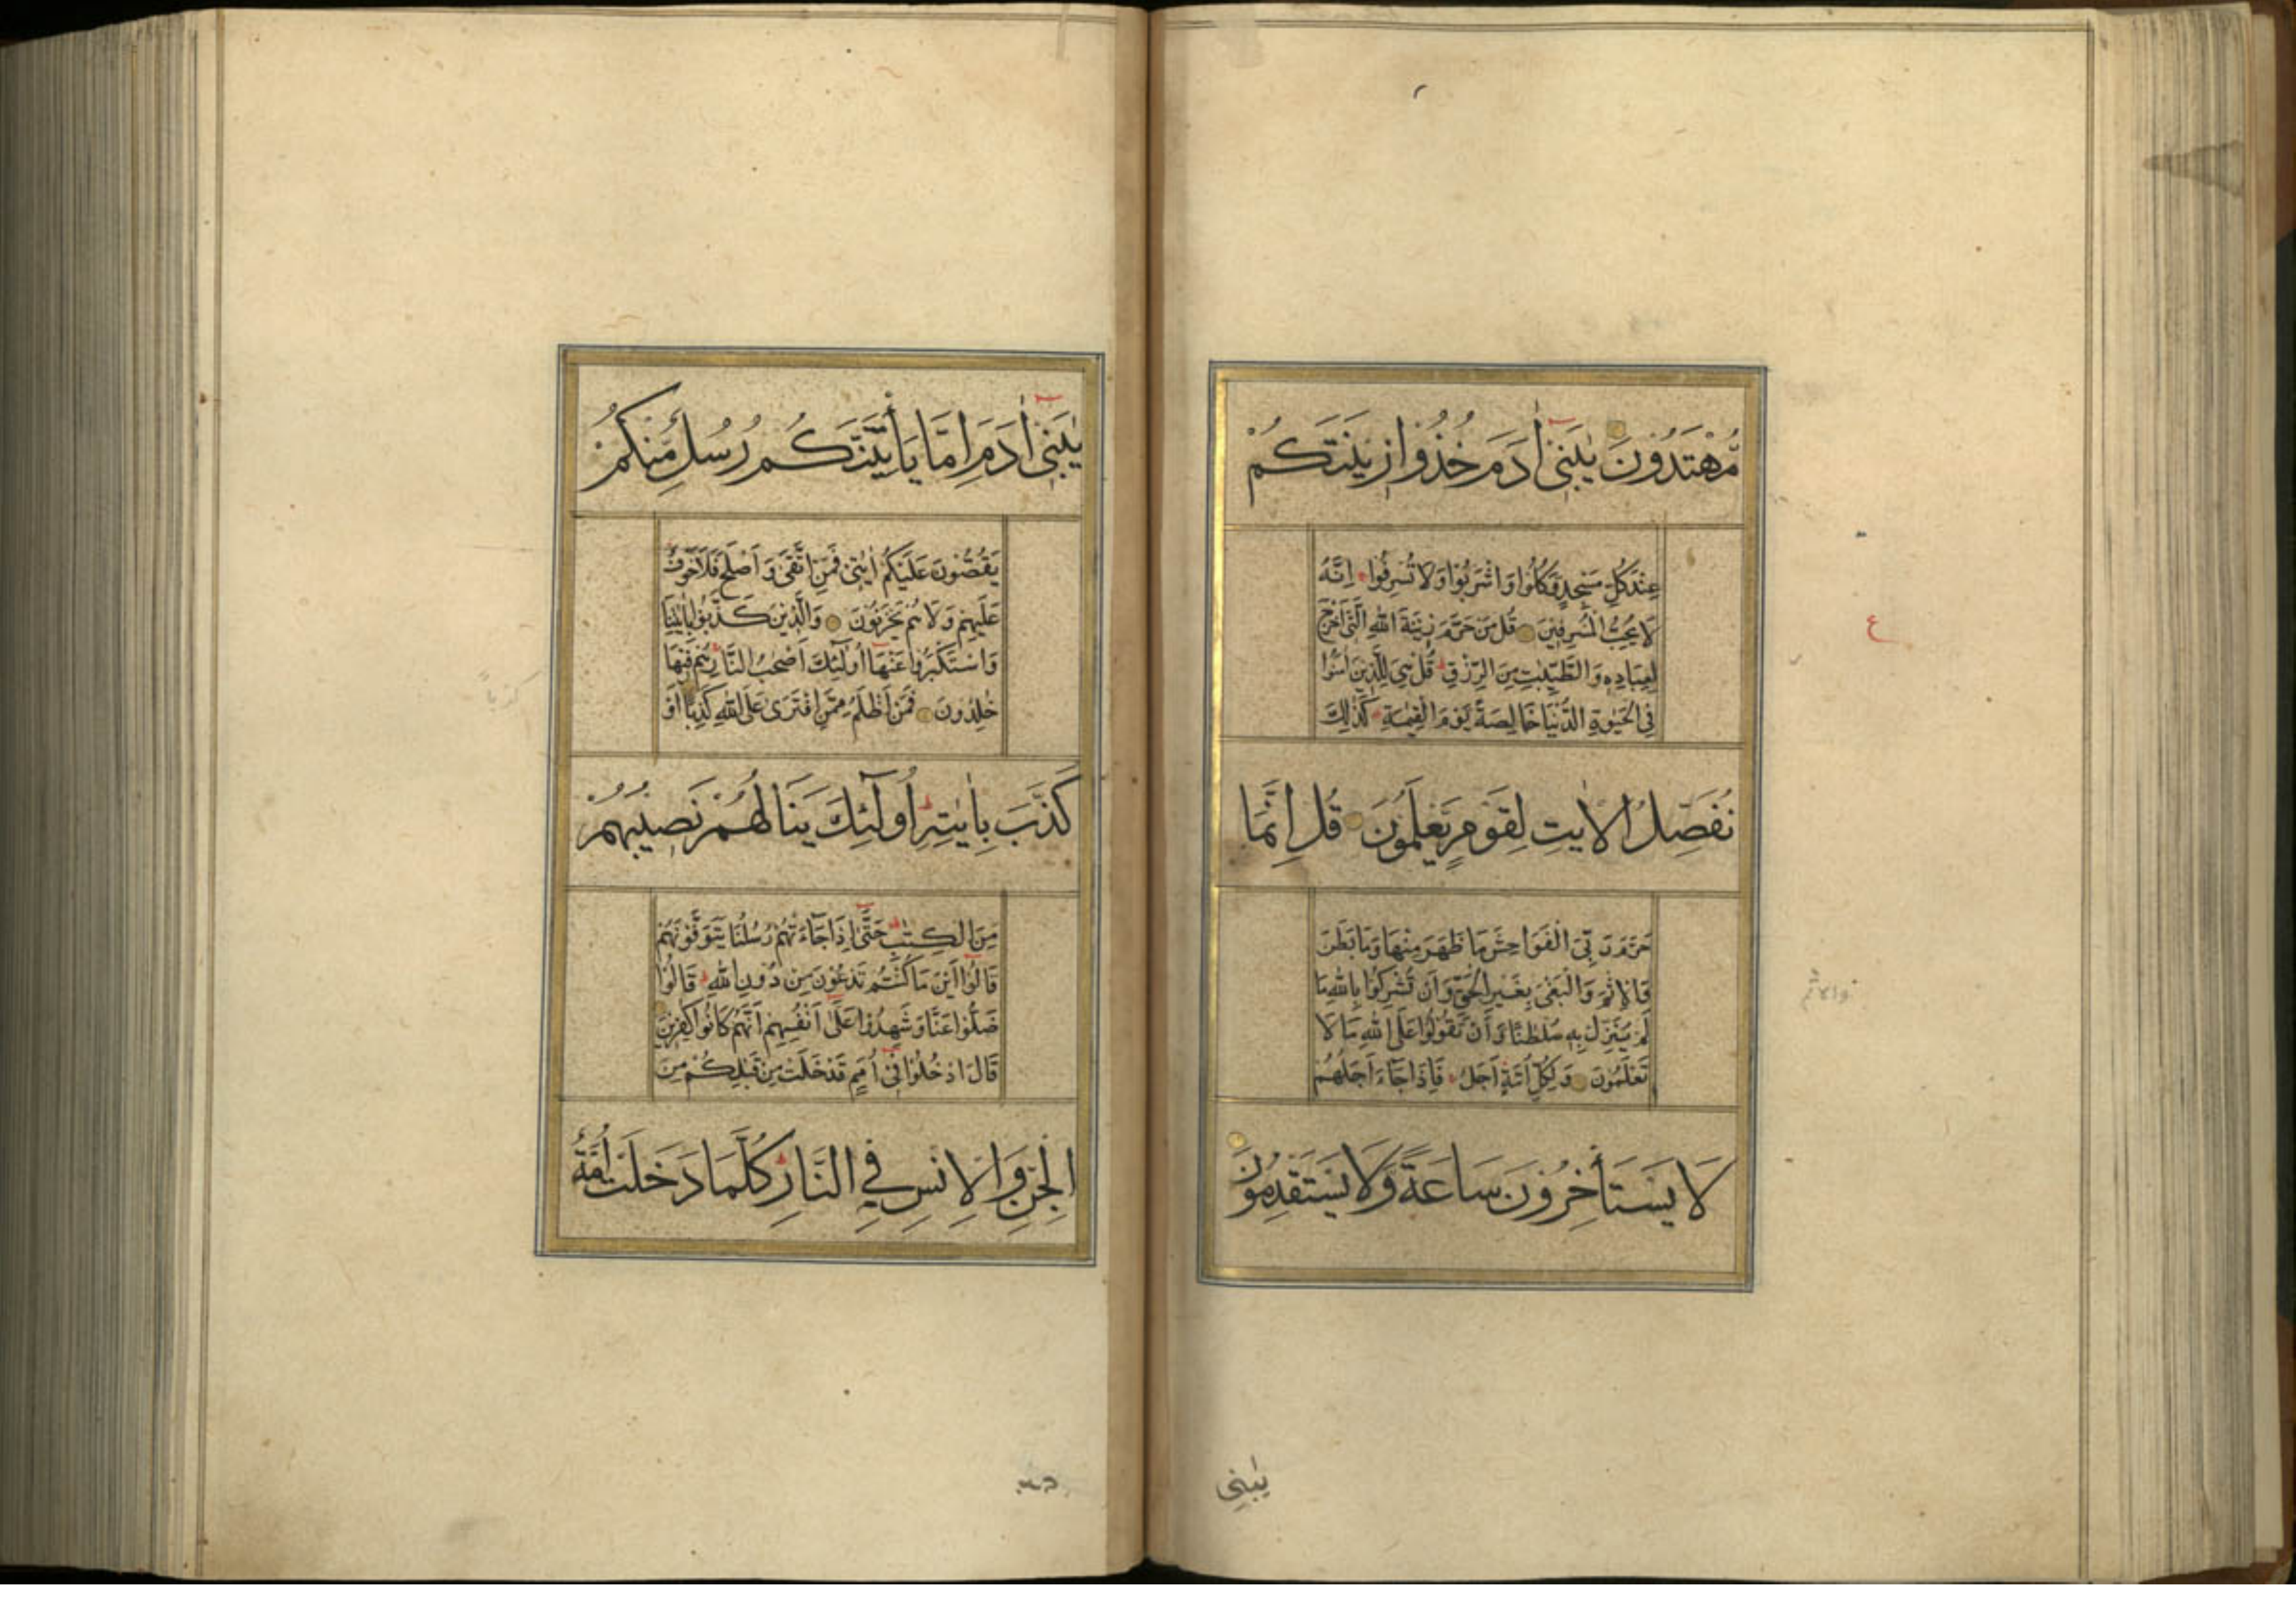 مُّهْتَدُونَ يٰبَنِىٓ اٰدَمَ خُذُوا زِينَتَكُمْ
عِنْدَ كُلِّ مَسْجِدٍ وَكُلُوا وَاشْرَبُوا وَلَا تُسْرِفُوا اِنَّهُ
لَا يُحِبُّ الْمُسْرِفِينَ قُلْ مَنْ حَرَّمَ زِينَةَ اللّٰهِ الَّتِى اَخْرَجَ
لِعِبَادِهِ وَالطَّيِّبٰتِ مِنَ الرِّزْقِ قُلْ هِىَ لِلَّذِينَ اٰمَنُوا
فِى الْحَيٰوةِ الدُّنْيَا خَالِصَةً يَوْمَ الْقِيٰمَةِ كَذٰلِكَ
نُفَصِّلُ الْاٰيٰتِ لِقَوْمٍ يَعْلَمُونَ قُلْ اِنَّمَا
حَرَّمَ رَبِّىَ الْفَوَاحِشَ مَا ظَهَرَ مِنْهَا وَمَا بَطَنَ
وَالْاِثْمَ وَالْبَغْىَ بِغَيْرِ الْحَقِّ وَاَنْ تُشْرِكُوا بِاللّٰهِ مَا
لَمْ يُنَزِّلْ بِهِ سُلْطٰنًا وَاَنْ تَقُولُوا عَلَى اللّٰهِ مَا لَا
تَعْلَمُونَ وَلِكُلِّ اُمَّةٍ اَجَلٌ فَاِذَا جَآءَ اَجَلُهُمْ
لَا يَسْتَأْخِرُونَ سَاعَةً وَّلَا يَسْتَقْدِمُونَ
يٰبَنِى
ع
والاثم
يٰبَنِىٓ اٰدَمَ اِمَّا يَأْتِيَنَّكُمْ رُسُلٌ مِّنْكُمْ
يَقُصُّونَ عَلَيْكُمْ اٰيٰتِى فَمَنِ اتَّقٰى وَاَصْلَحَ فَلَا خَوْفٌ
عَلَيْهِمْ وَلَا هُمْ يَحْزَنُونَ وَالَّذِينَ كَذَّبُوا بِاٰيٰتِنَا
وَاسْتَكْبَرُوا عَنْهَا اُولٰٓئِكَ اَصْحٰبُ النَّارِ هُمْ فِيهَا
خٰلِدُونَ فَمَنْ اَظْلَمُ مِمَّنِ افْتَرٰى عَلَى اللّٰهِ كَذِبًا اَوْ
كَذَّبَ بِاٰيٰتِهِ اُولٰٓئِكَ يَنَالُهُمْ نَصِيبُهُمْ
مِنَ الْكِتٰبِ حَتّٰى اِذَا جَآءَتْهُمْ رُسُلُنَا يَتَوَفَّوْنَهُمْ
قَالُوا اَيْنَ مَا كُنْتُمْ تَدْعُونَ مِنْ دُونِ اللّٰهِ قَالُوا
ضَلُّوا عَنَّا وَشَهِدُوا عَلٰى اَنْفُسِهِمْ اَنَّهُمْ كَانُوا كٰفِرِينَ
قَالَ ادْخُلُوا فِى اُمَمٍ قَدْ خَلَتْ مِنْ قَبْلِكُمْ مِنَ
الْجِنِّ وَالْاِنْسِ فِي النَّارِ كُلَّمَا دَخَلَتْ اُمَّةٌ
كذباً